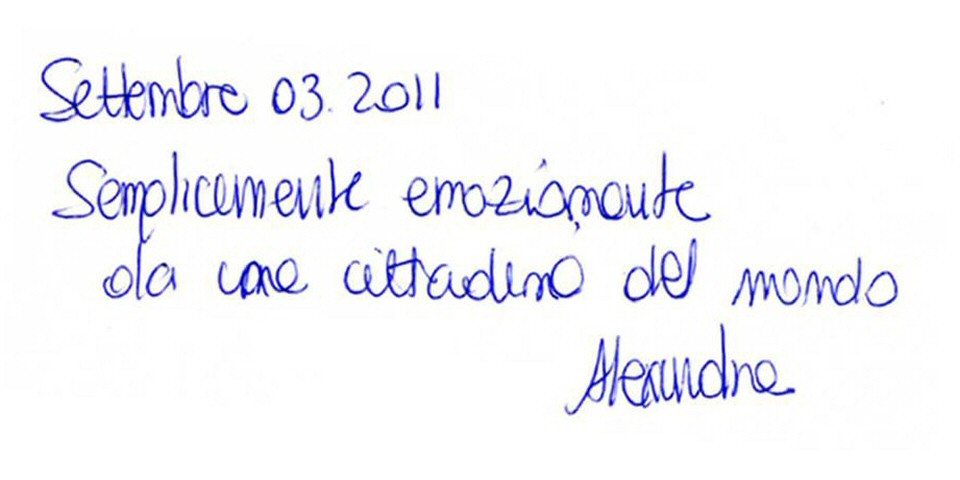 Settembre 03.2011
Semplicemente emozionante
da una cittadina del mondo
Alexandra